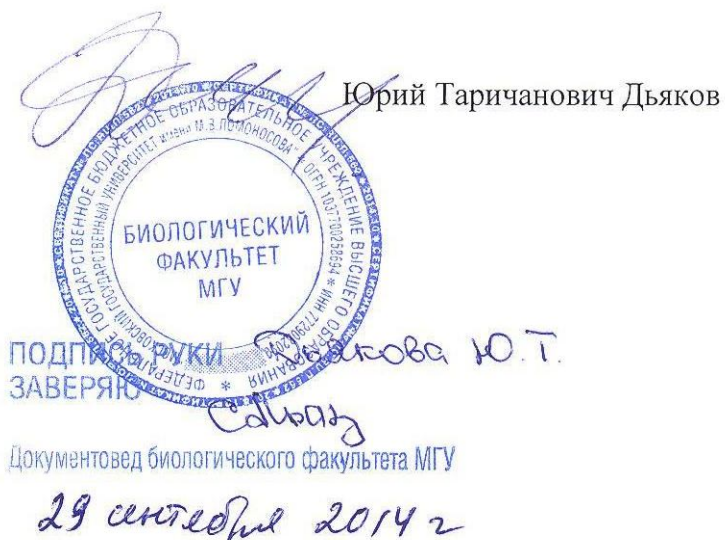 Юрий Таричанович Дьяков
ФЕДЕРАЛЬНОЕ ГОСУДАРСТВЕННОЕ БЮДЖЕТНОЕ ОБРАЗОВАТЕЛЬНОЕ УЧРЕЖДЕНИЕ ВЫСШЕГО ОБРАЗОВАНИЯ *
МОСКОВСКИЙ ГОСУДАРСТВЕННЫЙ УНИВЕРСИТЕТ имени М.В.ЛОМОНОСОВА" * ОГРН 1037700258694 * ИНН
БИОЛОГИЧЕСКИЙ
ФАКУЛЬТЕТ
МГУ
ПОДПИСЬ РУКИ Дьякова Ю.Т.
ЗАВЕРЯЮ
Документовед биологического факультета МГУ
29 сентября 2014 г